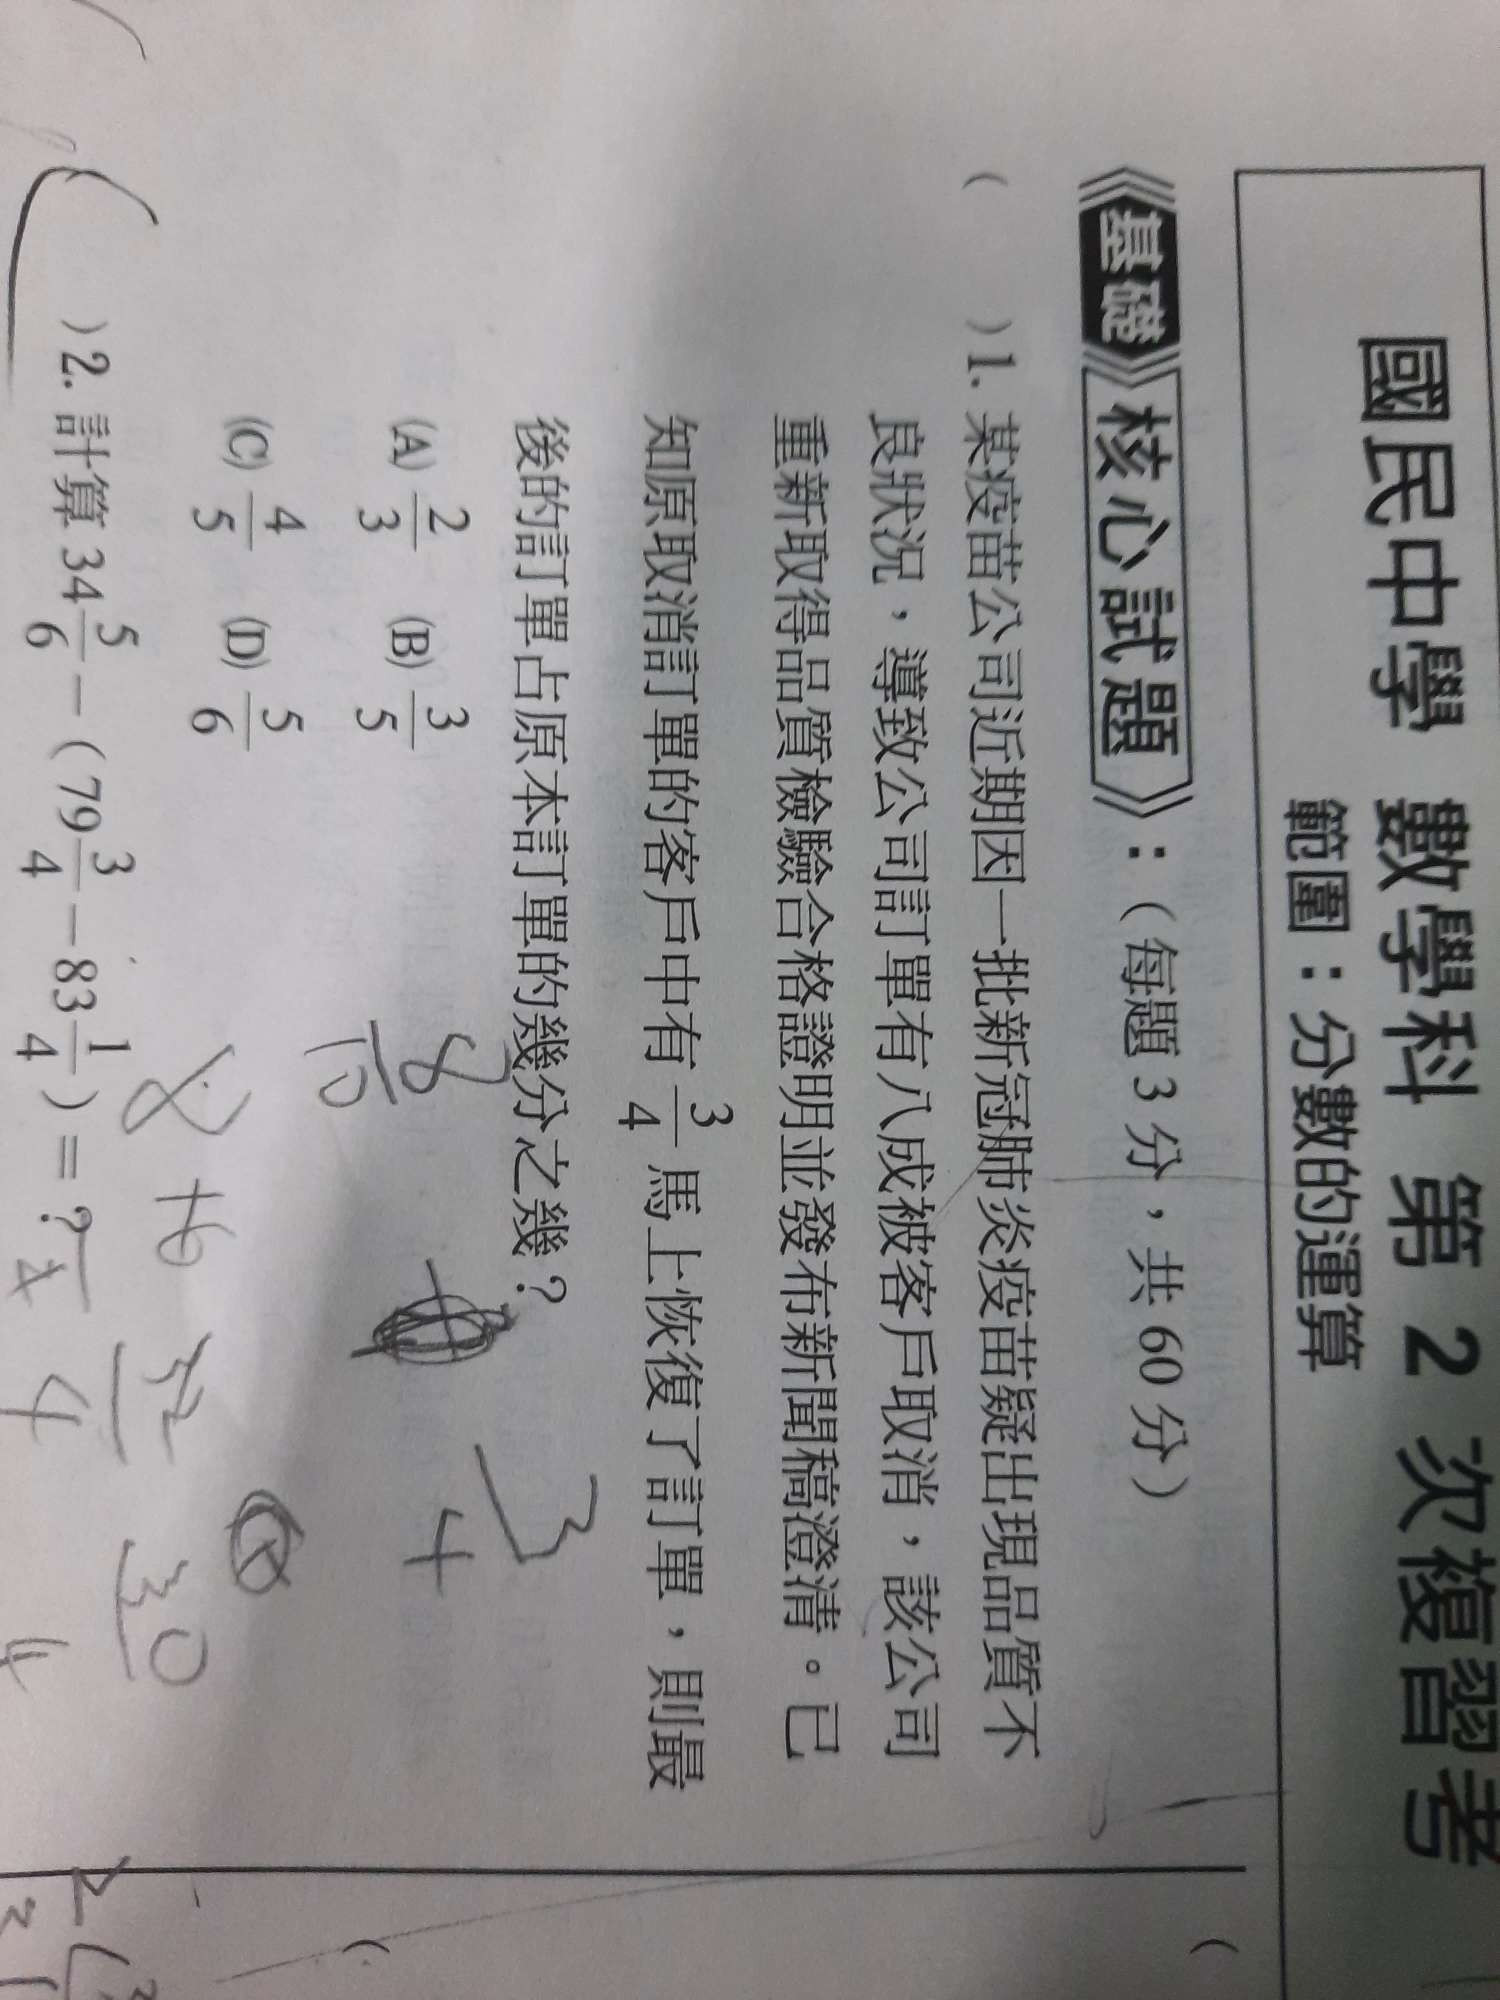 國民中學 數學科 第 2 次複習考
範圍：分數的運算
《基礎》核心試題》：（每題 3 分，共 60 分）
(　　) 1. 某疫苗公司近期因一批新冠肺炎疫苗疑出現品質不
良狀況，導致公司訂單有八成被客戶取消，該公司
重新取得品質檢驗合格證明並發布新聞稿澄清。已
知原取消訂單的客戶中有 3/4 馬上恢復了訂單，則最
後的訂單占原本訂單的幾分之幾？
(A) 2/3 (B) 3/5
(C) 4/5 (D) 5/6
8/10
3
4
8 16 32
30
) 2. 計算 34 5/6 − ( 79 3/4 − 83 1/4 ) = ?
4
4